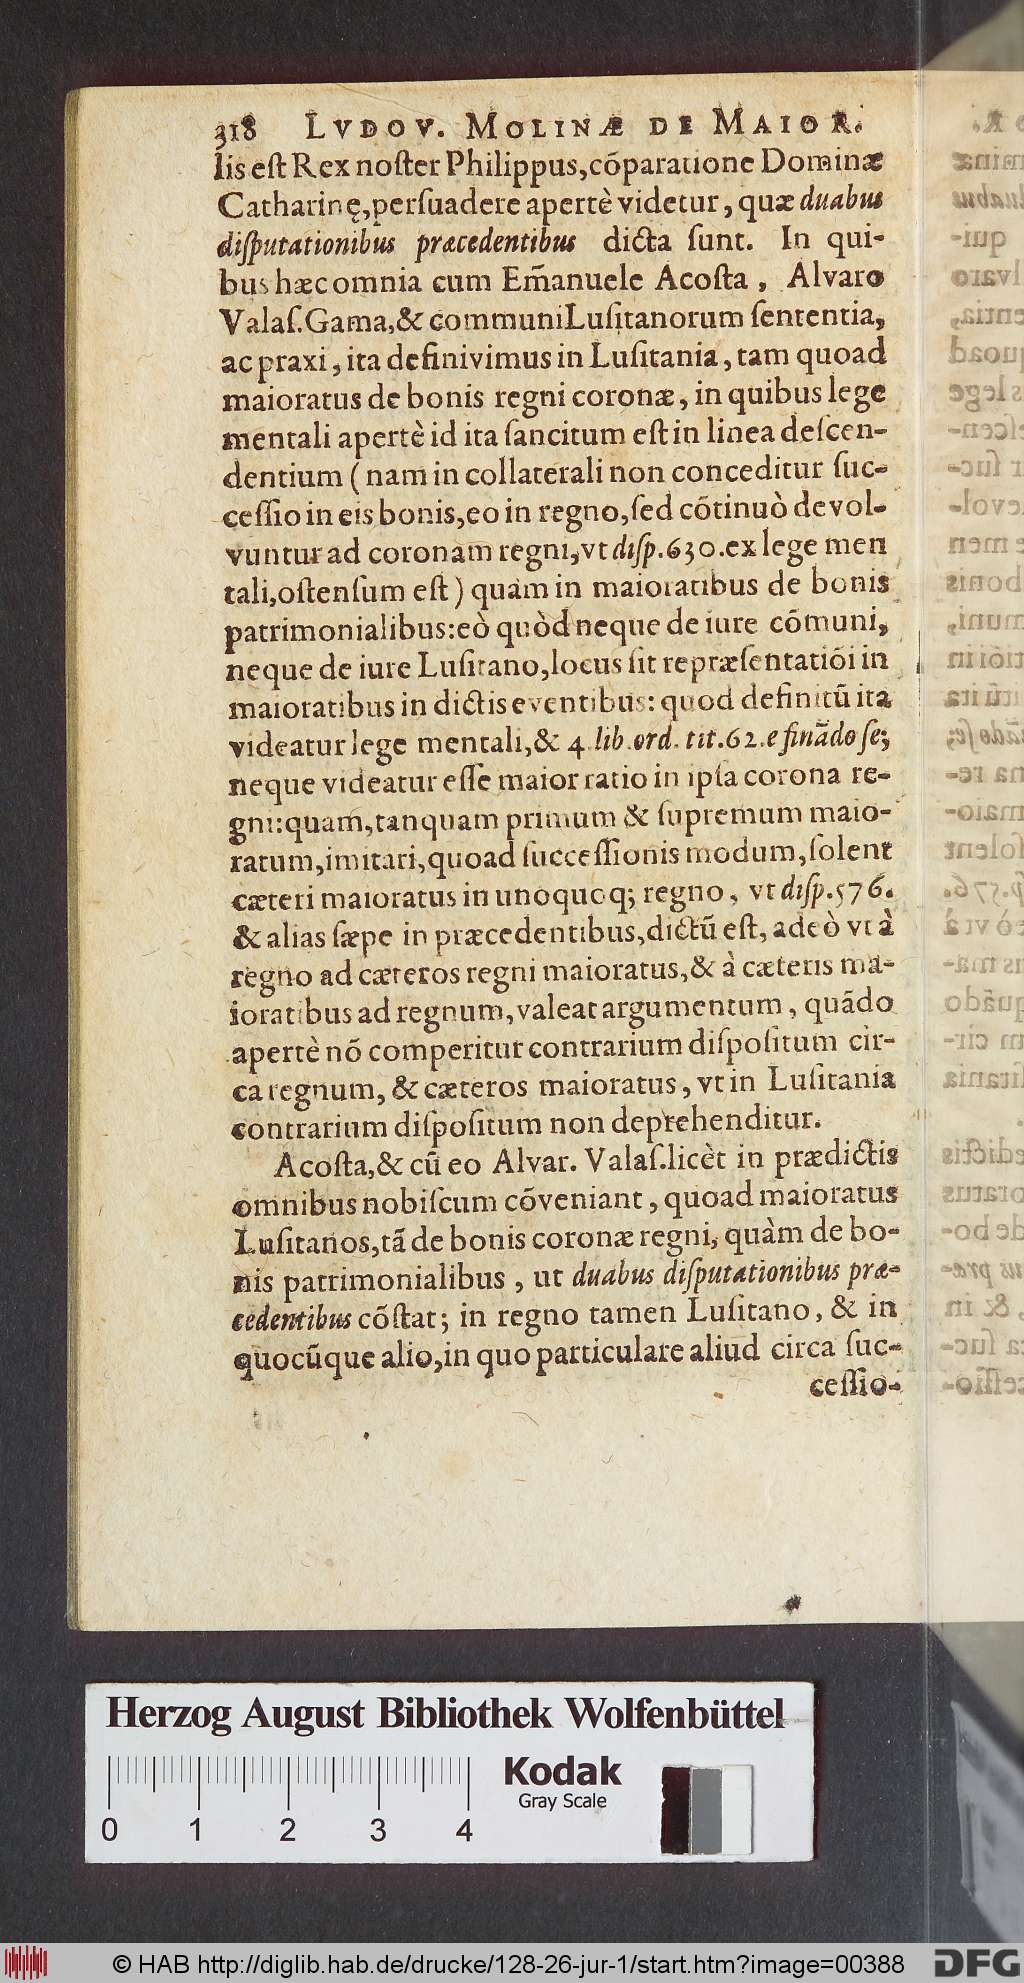 318 LVDOV. MOLINÆ DE MAIOR.
lis eſt Rex noſter Philippus, cõparatione Dominæ
Catharinę, perſuadere apertè videtur, quæ duabus
diſputationibus præcedentibus dicta ſunt. In qui-
bus hæc omnia cum Em̃anuele Acoſta, Alvaro
Valaſ. Gama, & communi Luſitanorum ſententia,
ac praxi, ita definivimus in Luſitania, tam quoad
maioratus de bonis regni coronæ, in quibus lege
mentali apertè id ita ſancitum eſt in linea deſcen-
dentium (nam in collaterali non conceditur ſuc-
ceſſio in eis bonis, eo in regno, ſed cõtinuò devol-
vuntur ad coronam regni, vt diſp. 630. ex lege men
tali, oſtenſum eſt) quàm in maioratibus de bonis
patrimonialibus: eò quòd neque de iure cõmuni,
neque de iure Luſitano, locus ſit repræſentatiõi in
maioratibus in dictis eventibus: quod definitũ ita
videatur lege mentali, & 4. lib. ord. tit. 62. e finãdo ſe;
neque videatur eſſe maior ratio in ipſa corona re-
gni: quam, tanquam primum & ſupremum maio-
ratum, imitari, quoad ſucceſſionis modum, ſolent
cæteri maioratus in unoquoq; regno, vt diſp. 576.
& alias ſæpe in præcedentibus, dictũ eſt, adeò vt à
regno ad cæteros regni maioratus, & à cæteris ma-
ioratibus ad regnum, valeat argumentum, quãdo
apertè nõ comperitur contrarium diſpoſitum cir-
ca regnum, & cæteros maioratus, vt in Luſitania
contrarium diſpoſitum non deprehenditur.
Acoſta, & cũ eo Alvar. Valaſ. licèt in prædictis
omnibus nobiſcum cõveniant, quoad maioratus
Luſitanos, tã de bonis coronæ regni, quàm de bo-
nis patrimonialibus, ut duabus diſputationibus præ-
cedentibus cõſtat; in regno tamen Luſitano, & in
quocũque alio, in quo particulare aliud circa ſuc-
ceſſio-
Herzog August Bibliothek Wolfenbüttel
Kodak
Gray Scale
0 1 2 3 4
© HAB http://diglib.hab.de/drucke/128-26-jur-1/start.htm?image=00388
DFG